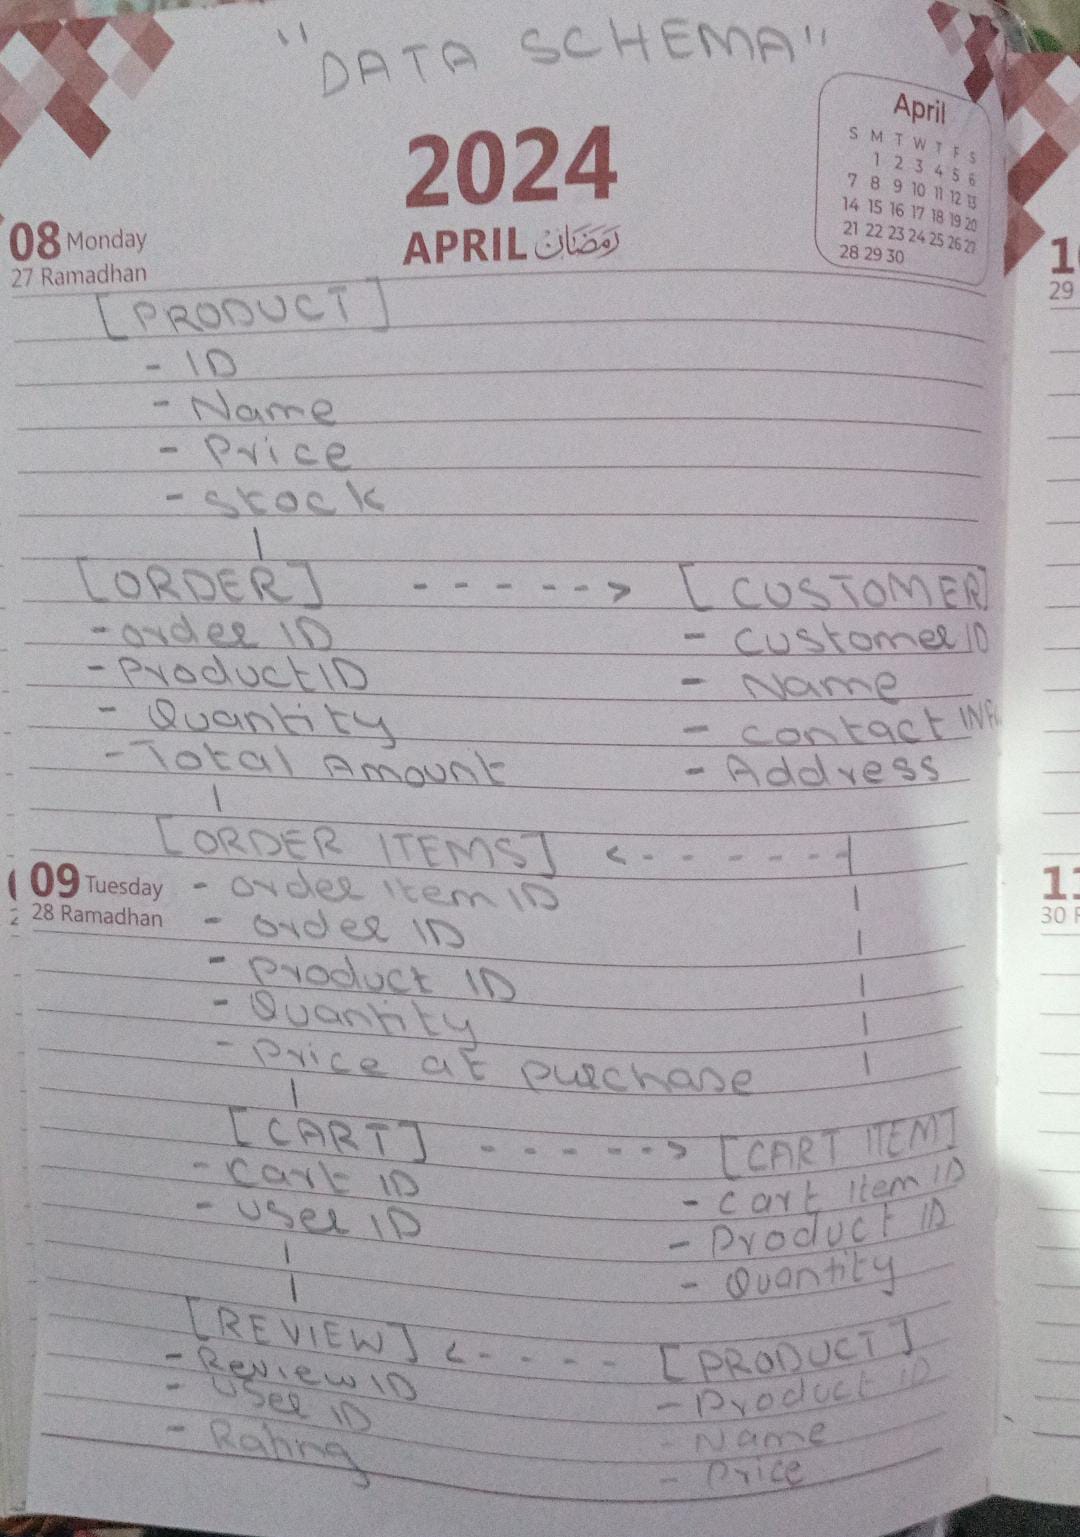 "DATA SCHEMA"
2024
APRIL رمضان
April
S M T W T F S
1 2 3 4 5 6
7 8 9 10 11 12 13
14 15 16 17 18 19 20
21 22 23 24 25 26 27
28 29 30
08 Monday
27 Ramadhan
[PRODUCT]
- ID
- Name
- Price
- Stock
[ORDER] -----> [CUSTOMER]
- order ID
- Product ID
- Quantity
- Total Amount
- Customer ID
- Name
- contact INFo
- Address
[ORDER ITEMS] <------
09 Tuesday
28 Ramadhan
- order item ID
- order ID
- product ID
- Quantity
- Price at purchase
[CART] -----> [CART ITEM]
- Cart ID
- User ID
- Cart Item ID
- Product ID
- Quantity
[REVIEW] <---- [PRODUCT]
- Review ID
- User ID
- Rating
- Product ID
- Name
- Price
29
30